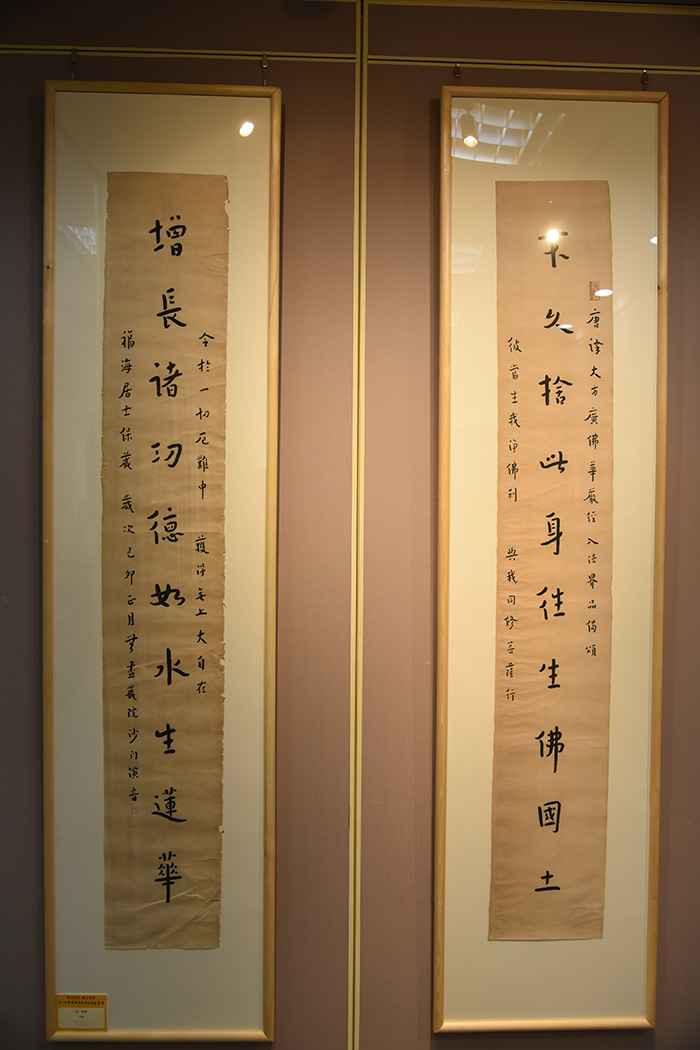 唐譯大方廣佛華嚴經入法界品偈頌
不久捨此身往生佛國土
彼當生我淨佛刹 與我同修菩薩行
令於一切厄難中 獲得無上大自在
增長諸功德如水生蓮華
福海居士保藏 歲次己卯正月無盡藏院沙門演音